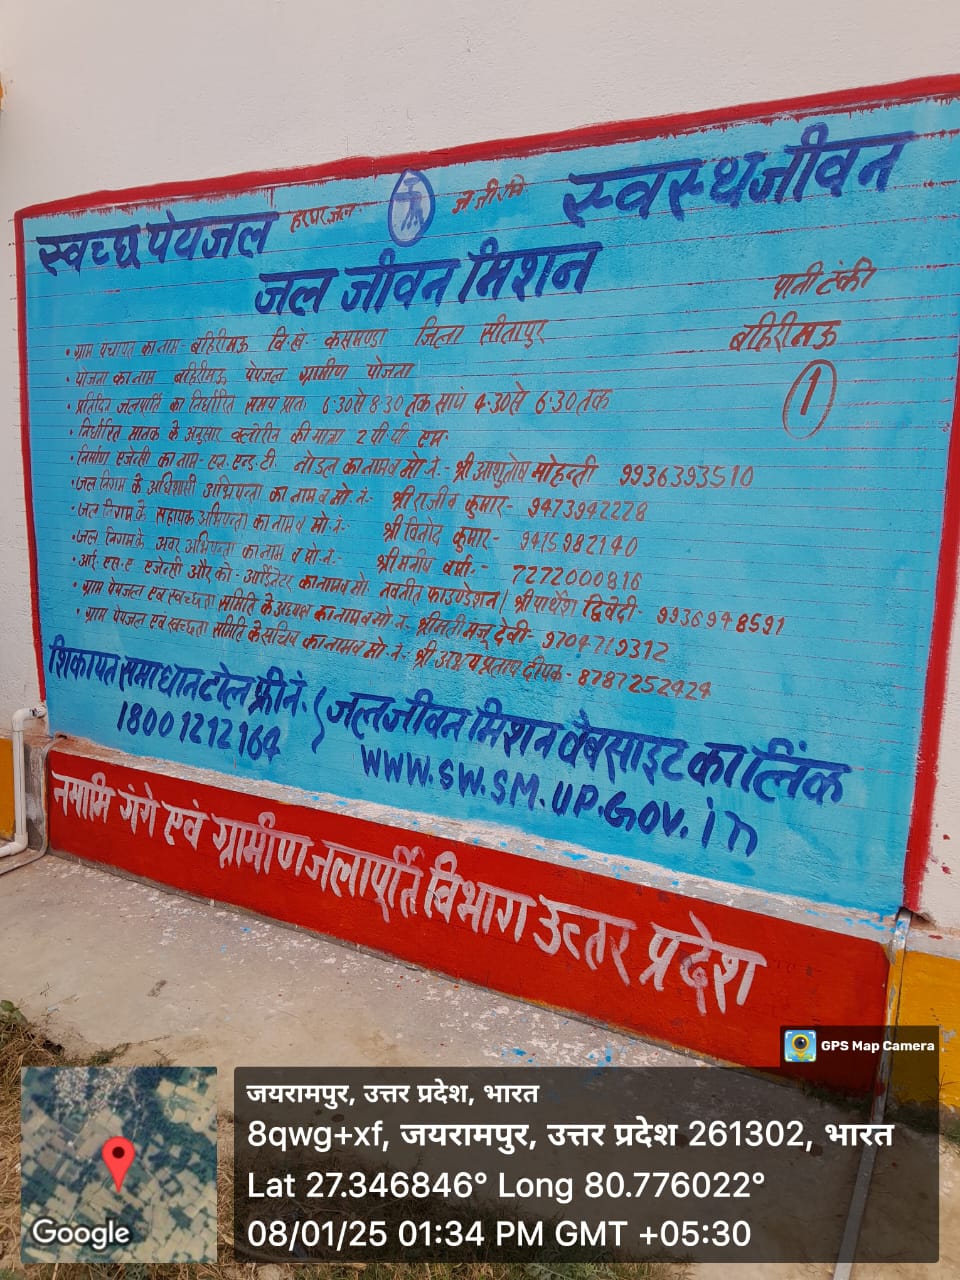 स्वच्छ पेयजल हर घर जल स्वस्थ जीवन
जल जीवन मिशन
पानी टंकी
बहिरीमऊ
1
• ग्राम पंचायत का नाम- बहिरीमऊ वि.खं.- कसमण्डा जिला सीतापुर
• योजना का नाम बहिरीमऊ पेयजल ग्रामीण योजना
• प्रतिदिन जलपूर्ति का निर्धारित समय प्रातः 6:30 से 8:30 तक सायं 4:30 से 6:30 तक
• निर्धारित मानक के अनुसार क्लोरीन की मात्रा 2 पी पी एम.
• निर्माण एजेन्सी का नाम- एल. एण्ड. टी. नोडल का नाम व मो. नं.- श्री आशुतोष मोहन्ती 9936393510
• जल निगम के अधिशासी अभियन्ता का नाम व मो. नं.- श्री राजीव कुमार- 9473942228
• जल निगम के सहायक अभियन्ता का नाम व मो. नं.- श्री विनोद कुमार- 9415982140
• जल निगम के अवर अभियन्ता का नाम व मो. नं.- श्री मनीष वर्मा.- 7272000816
• आई. एस. ए एजेन्सी और को- आर्डिनेटर का नाम व मो. नवनीत फाउण्डेशन/ श्री पार्थेश द्विवेदी- 9936948591
• ग्राम पेयजल एवं स्वच्छता समिति के अध्यक्ष का नाम व मो. नं- श्रीमती मंजू देवी- 9704719312
• ग्राम पेयजल एवं स्वच्छता समिति के सचिव का नाम व मो. नं.- श्री अभय प्रताप दीपक- 8787252424
शिकायत समाधान टोल फ्री नं. ( जल जीवन मिशन वैबसाइट का लिंक
18001212164 WWW.SW.SM.UP.GOV.in
नमामि गंगे एवं ग्रामीण जलापूर्ति विभाग उत्तर प्रदेश
GPS Map Camera
जयरामपुर, उत्तर प्रदेश, भारत
8qwg+xf, जयरामपुर, उत्तर प्रदेश 261302, भारत
Lat 27.346846° Long 80.776022°
08/01/25 01:34 PM GMT +05:30
Google